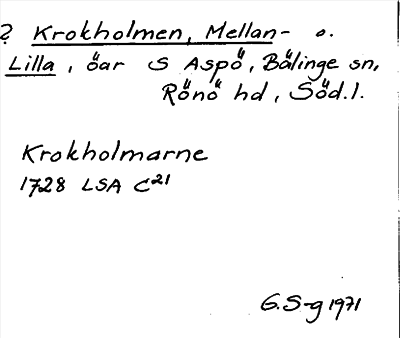 ? Krokholmen, Mellan- o.
Lilla, öar S Aspö, Bälinge sn,
Rönö hd, Söd.l.
Krokholmarne
1728 LSA C21
G.S-g 1971